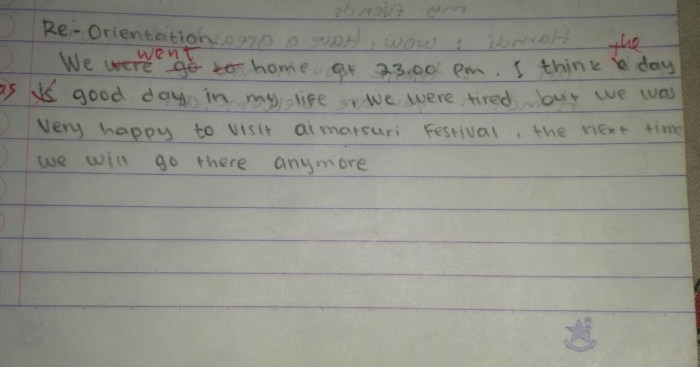 Re-Orientation
went the
We were go to home at 23.00 pm. I think a day
as is good day in my life, we were tired but we was
Very happy to visit aimatsuri Festival, the next time
we will go there anymore